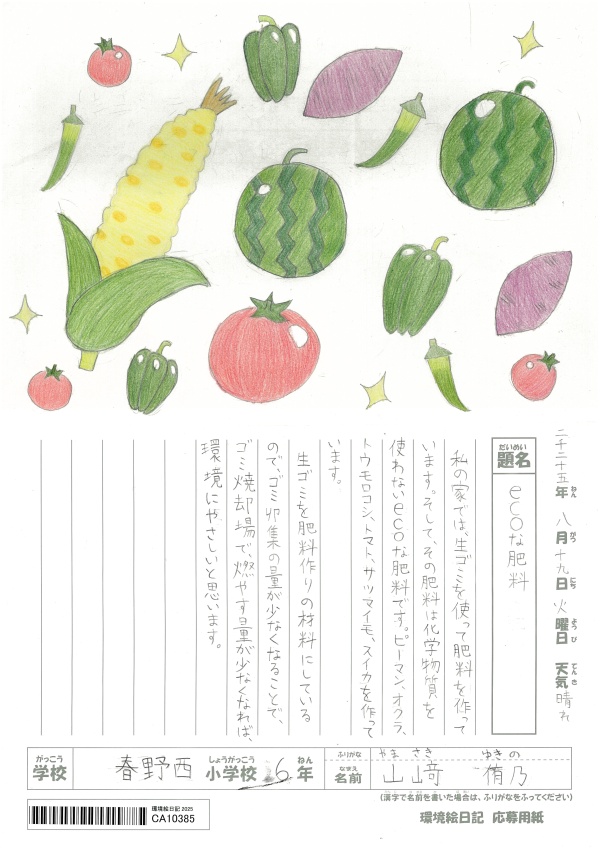 二千二十五年 八月十九日 火曜日 天気 晴れ
ねん がつ にち ようび てんき
だいめい
題名 ecoな肥料
私の家では、生ゴミを使って肥料を作って
います。そして、その肥料は化学物質を
使わないecoな肥料です。ピーマン、オクラ、
トウモロコシ、トマト、サツマイモ、スイカを作って
います。
生ゴミを肥料作りの材料にしている
ので、ゴミ収集の量が少なくなることで、
ゴミ焼却場で、燃やす量が少なくなれば、
環境にやさしいと思います。
がっこう しょうがっこう ねん
学校 春野西 小学校 6年
ふりがな やま さき ゆき の
なまえ
名前 山﨑 侑乃
(漢字で名前を書いた場合は、ふりがなをふってください)
環境絵日記 2025
CA10385
環境絵日記 応募用紙